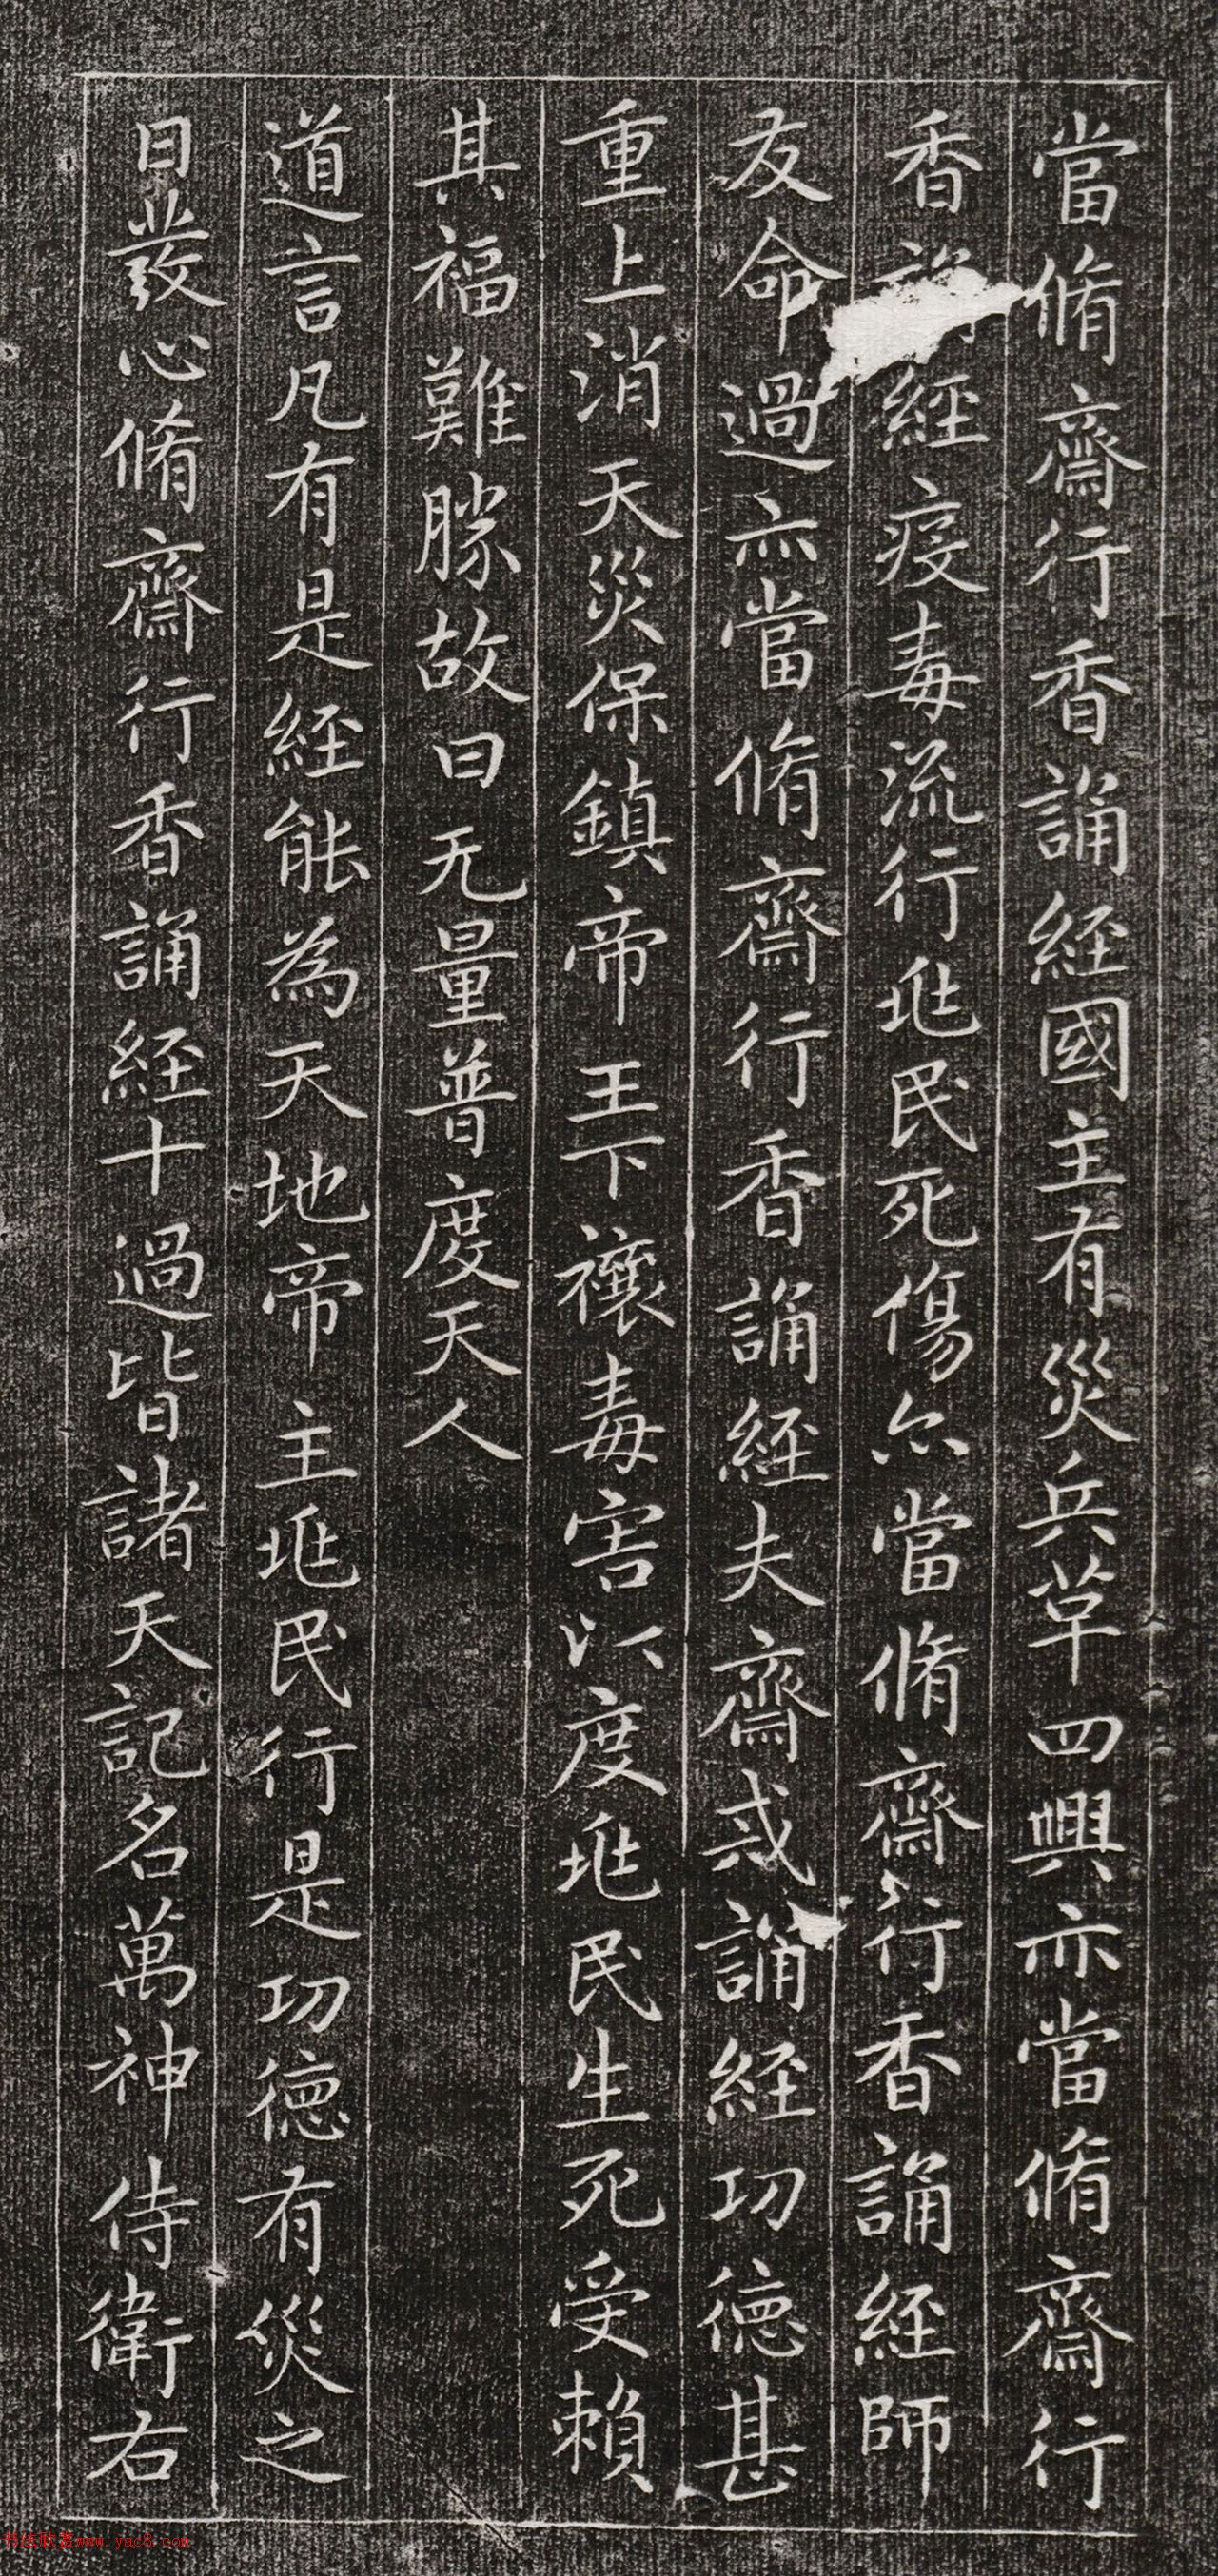 當脩齋行香誦經國主有災兵革四興亦當脩齋行
香誦經疫毒流行兆民死傷亦當脩齋行香誦經師
友命過亦當脩齋行香誦經夫齋戒誦經功德甚
重上消天災保鎮帝王下禳毒害以度兆民生死受賴
其福難勝故曰无量普度天人
道言凡有是經能為天地帝主兆民行是功德有災之
日發心脩齋行香誦經十過皆諸天記名萬神侍衛右
书法欣赏www.yac8.com